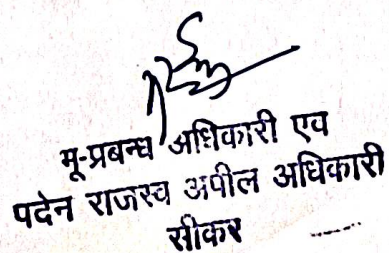 मू-प्रबन्ध अधिकारी एव
पदेन राजस्व अपील अधिकारी
सीकर